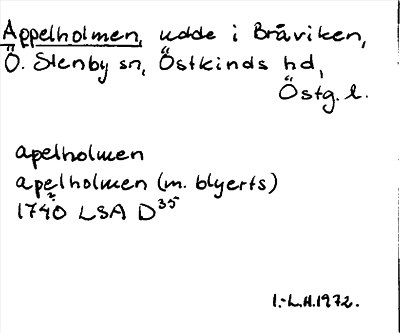 Appelholmen, udde i Bråviken,
Ö. Stenby sn, Östkinds hd,
Östg. l.
apelholmen
apelholmen (m. blyerts)
1740 LSA D35
I.-L.H. 1972.